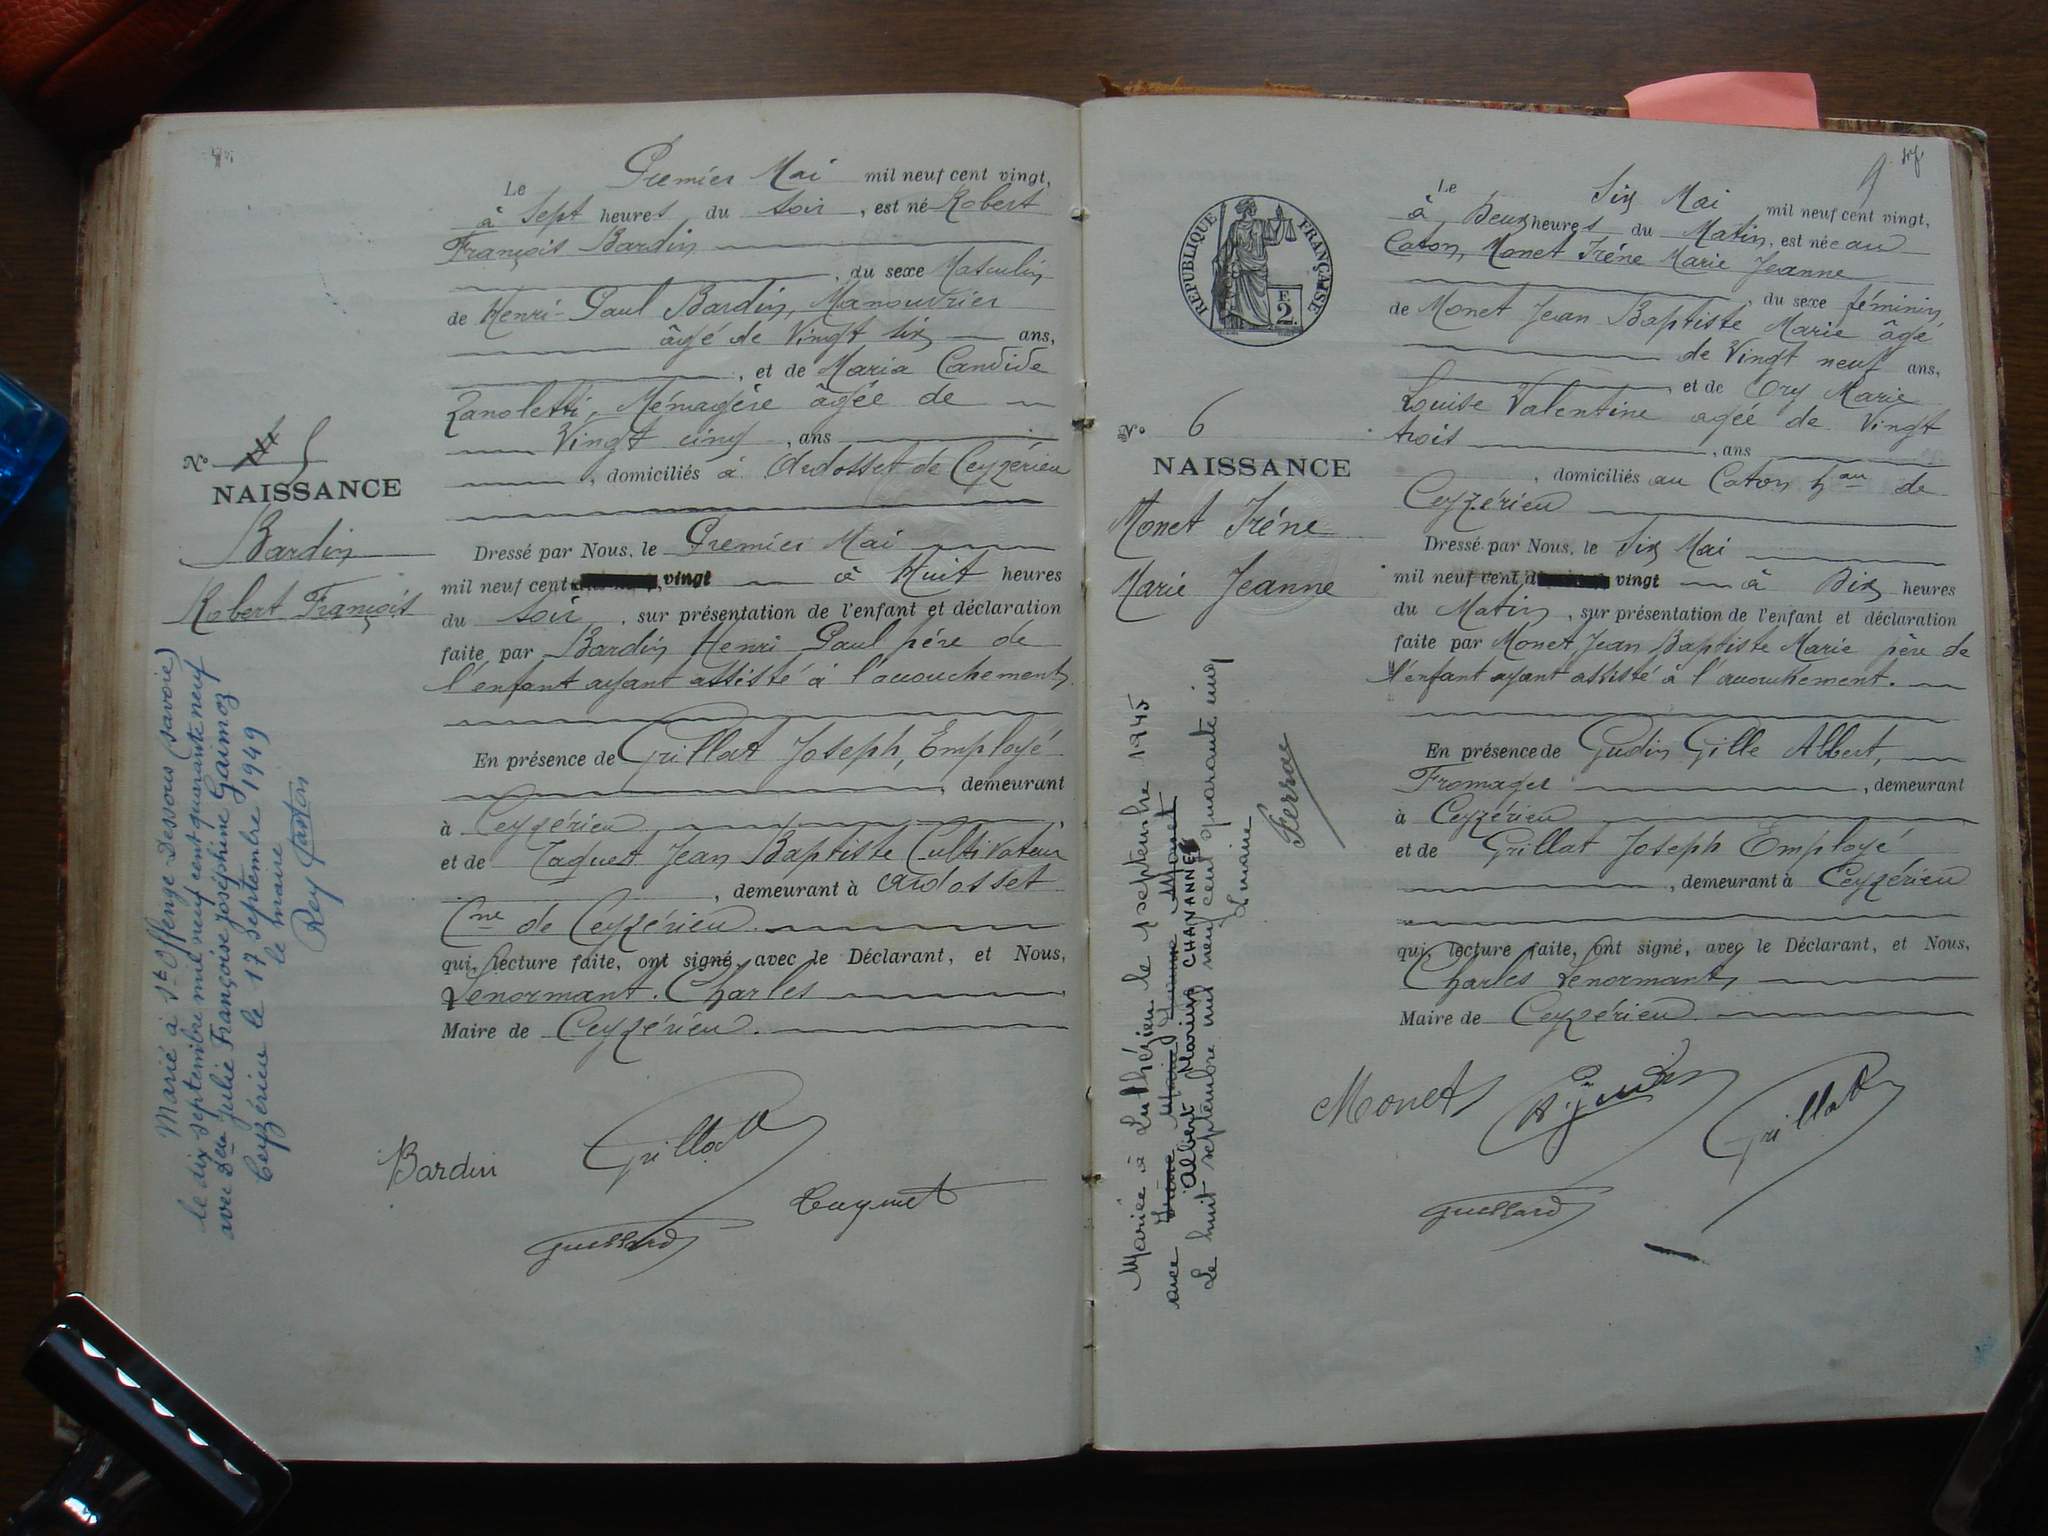 Le Premier Mai mil neuf cent vingt,
à Sept heures du soir, est né Robert
François Bardin
, du sexe Masculin
de Henri-Paul Bardin, Manouvrier
âgé de Vingt six ans,
, et de Maria Candide
Zanoletti, Ménagère âgée de
Vingt cinq, ans
, domiciliés à Ardosset de Ceyzérieu
No 5
NAISSANCE
Bardin
Robert François
Dressé par Nous, le Premier Mai
mil neuf cent vingt à Huit heures
du soir, sur présentation de l'enfant et déclaration
faite par Bardin Henri Paul père de
l'enfant ayant assisté à l'accouchement
En présence de Grillat Joseph, Employé
, demeurant
à Ceyzérieu
et de Taquet Jean Baptiste Cultivateur
, demeurant à Ardosset
Cne de Ceyzérieu.
qui, lecture faite, ont signé, avec le Déclarant, et Nous,
Lenormant. Charles
Maire de Ceyzérieu.
Marié à St Offenge Dessous (savoie)
le dix septembre mil neuf cent quarante neuf
avec Delle Julie Françoise Joséphine Gaimoz
Ceyzérieu le 17 septembre 1949
le maire
Rey Gaston
Bardin
Grillat
Taquet
Guessard
RÉPUBLIQUE FRANÇAISE
F
2
Le Six Mai mil neuf cent vingt,
à Deux heures du Matin, est née au
Caton, Monet Iréne Marie Jeanne
, du sexe féminin
de Monet Jean Baptiste Marie âgé
de Vingt neuf ans,
, et de Ory Marie
Louise Valentine agée de Vingt
trois, ans
, domiciliés au Caton hau de
Ceyzérieu
No 6
NAISSANCE
Monet Iréne
Marie Jeanne
Dressé par Nous, le Six Mai
mil neuf cent vingt à Dix heures
du Matin, sur présentation de l'enfant et déclaration
faite par Monet Jean Baptiste Marie père de
l'enfant ayant assisté à l'accouchement.
En présence de Gudin Gille Albert,
Fromager, demeurant
à Ceyzérieu
et de Grillat Joseph Employé
, demeurant à Ceyzérieu
qui, lecture faite, ont signé, avec le Déclarant, et Nous,
Charles Lenormant,
Maire de Ceyzérieu.
Mariée à Luthézieu le 1 septembre 1945
avec Iréne Marie Jeanne Monet
Albert Marius CHAVANNE
Le huit septembre mil neuf cent quarante cinq
Le maire
Ferrac
Monet
A. Gudin
Grillat
Guessard